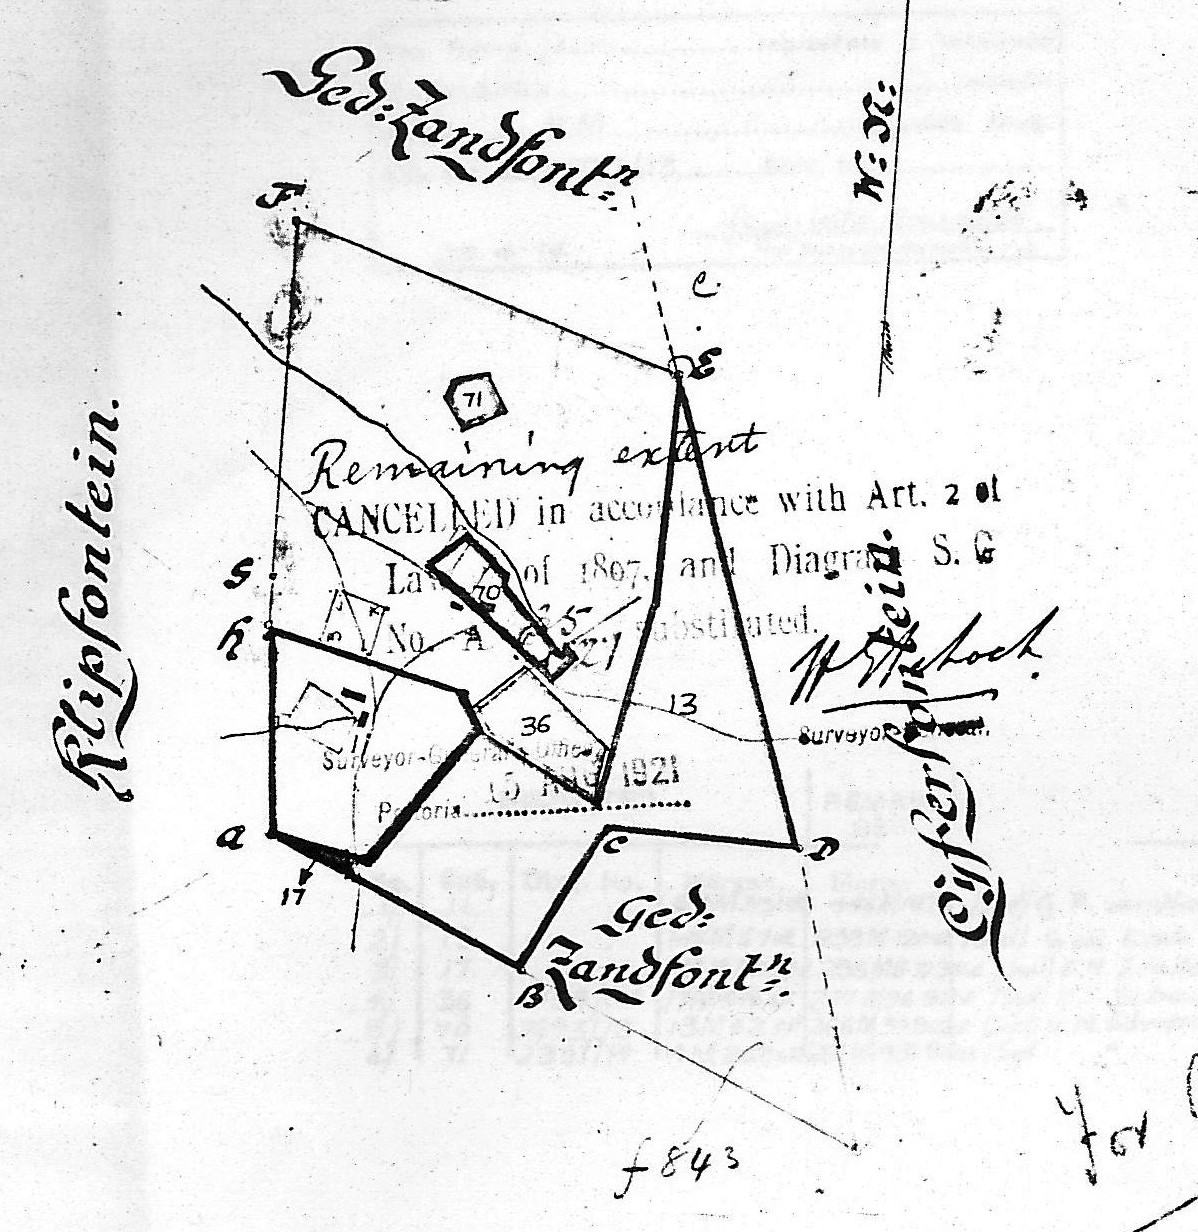 Ged: Zandfontn:
W: N:
F
C.
E
71
Remaining extent
CANCELLED in accordance with Art. 2 of
Law of 1897, and Diagram S. G
No. A substituted.
70
S
h
Klipfontein.
Cijferfontein.
13
36
Surveyor-General.
Surveyor-General's Office,
15 AUG 1921
Pretoria
a
C
D
17
Ged:
Zandfontn:
B
f 843